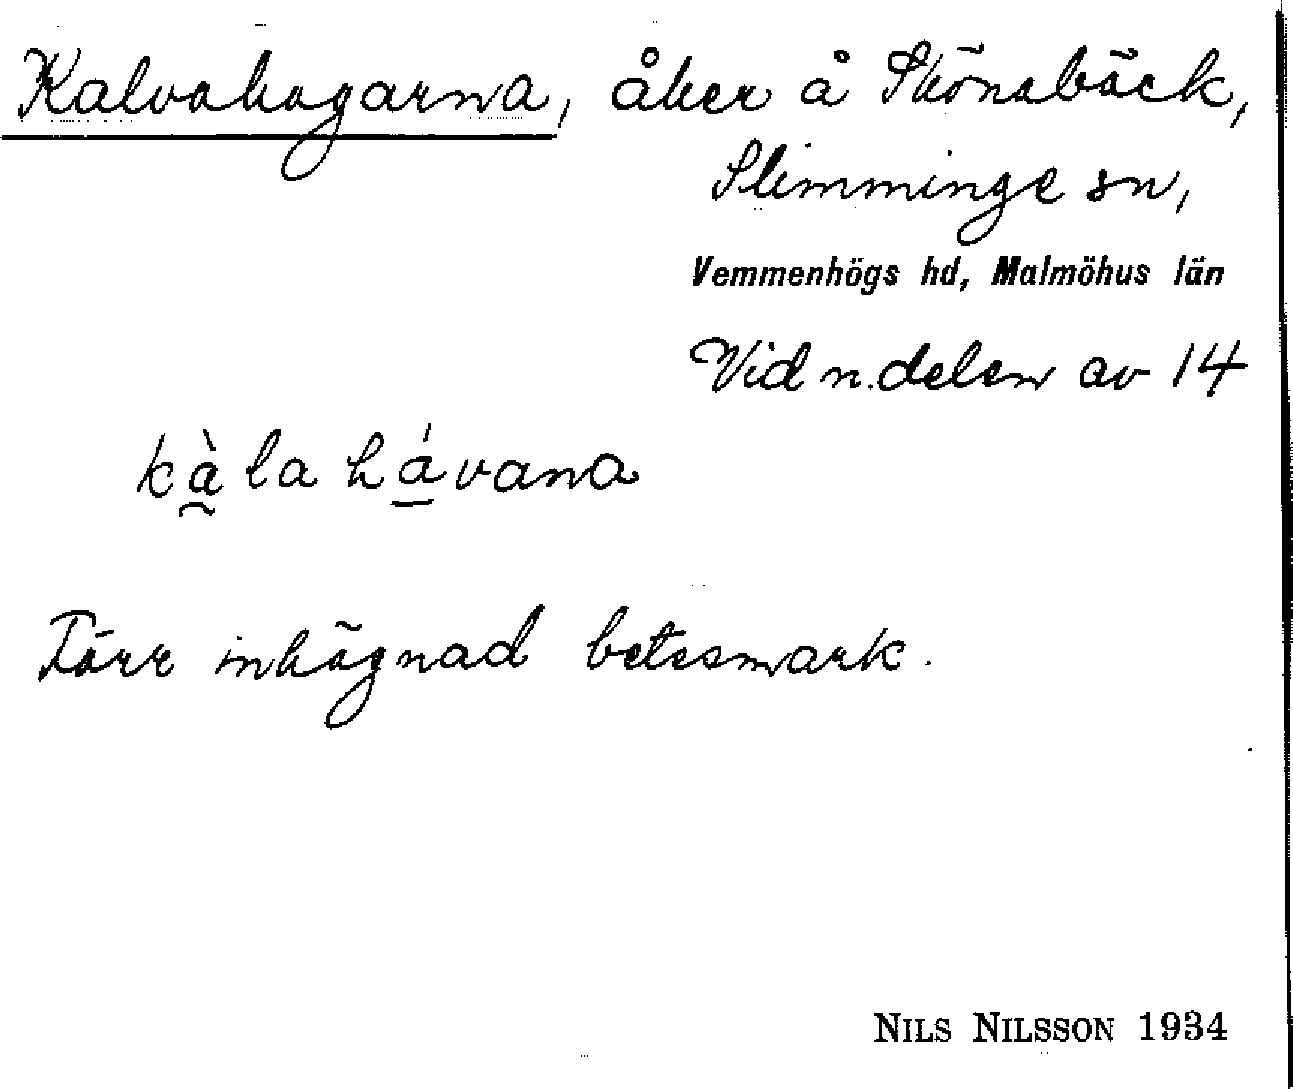 Kalvahagarna, åker å Skönabäck,
Slimminge sn,
Vemmenhögs hd, Malmöhus län
Vid n. delen av 14
kà̰la há̱vana
Förr inhägnad betesmark.
NILS NILSSON 1934